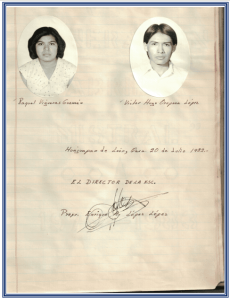 Raquel Figueroa García
Víctor Hugo López
Huajuapan de León, Oax. 20 de Julio 1983.
EL DIRECTOR DE LA ESC.
Profr. Enrique López López